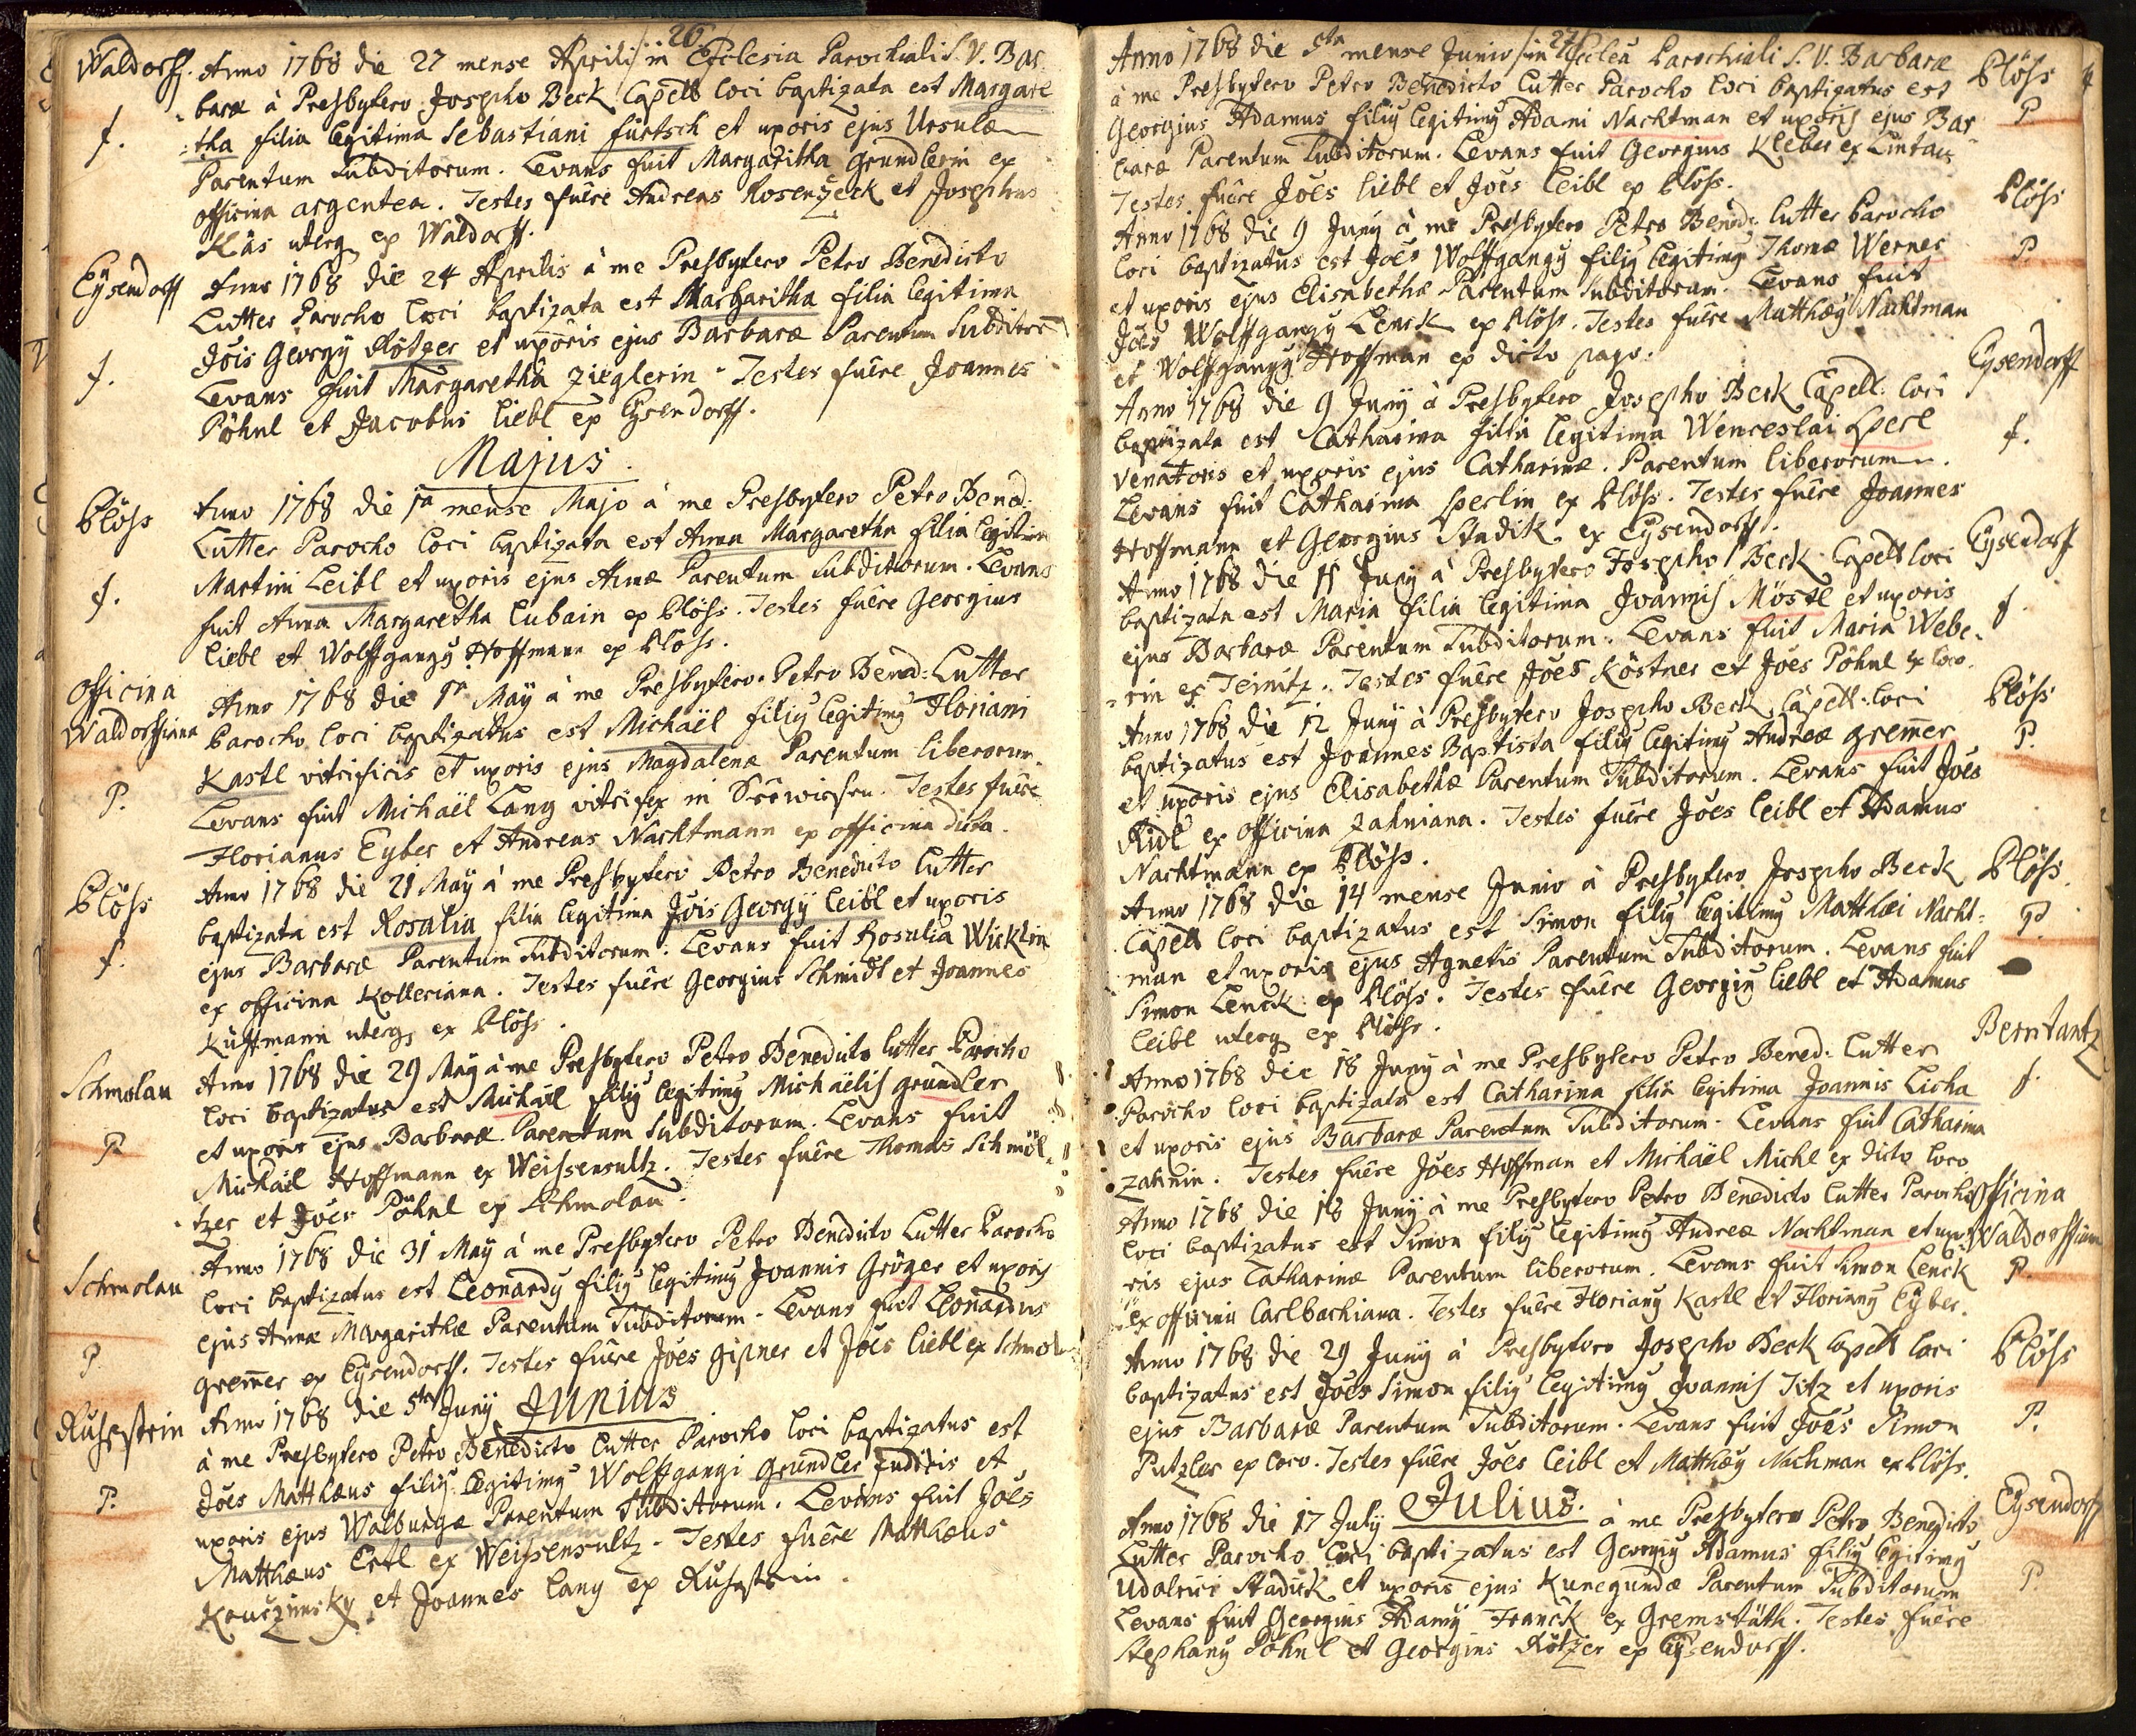 26
Waldorff. Anno 1768 die 27 mense Aprili in Ecclesia Parochiali S. V. Bar
baræ à Presbytero Josepho Beck Capell loci baptizata est Margare
f. :tha filia legitima Sebastiani fürtsch et uxoris ejus Ursulæ
Parentum Subditorum. Levans fuit Margaritha Gründlerin ex
officina argentea. Testes fuêre Andreas Rosenzeck et Josephus
Kläs uterq ex Waldorff.
Eÿsendorff Anno 1768 die 24 Aprilis à me Presbytero Petro Benedicto
Lutter Parocho loci baptizata est Margaritha filia legitima
Jöis Georgÿ Rötzer et uxoris ejus Barbaræ Parentum Subditoru
f. Levans fuit Margaretha Zieglerin. Testes fuêre Joannes
Pöhnl et Jacobus liebl ex Eysendorff.
Majus.
Plöss Anno 1768 die 1a mense Majo à me Presbytero Petro Bened:
Lutter Parocho loci baptizata est Anna Margaretha filia legitima
f. Martini Leibl et uxoris ejus Annæ Parentum Subditorum. Levans
fuit Anna Margaretha Lubain ex Plöss. Testes fuêre Georgius
liebl et Wolffgangÿ Hoffmann ex Plöss.
Officina Anno 1768 die 1a Maÿ à me Presbytero Petro Bened: Lutter
Waldorffiana Parocho loci baptizatus est Michaël filiÿ legitimÿ Floriani
Kastl vitrificis et uxoris ejus Magdalenæ Parentum liberorum.
P. Levans fuit Michaël Lang vitrifex in Seewiesen. Testes fuêre
Florianus Eyber et Andreas Nachtmann ex officina dicta.
Plöss Anno 1768 die 21 Maÿ à me Presbytero Petro Benedicto Lutter
baptizata est Rosalia filia legitima Jöis Georgÿ Leibl et uxoris
f. ejus Barbaræ Parentum Subditorum. Levans fuit Rosalia Wicklin
ex officina Kolleriana. Testes fuêre Georgius Schmidt et Joannes
Kuffmann uterq ex Plöss.
Schmolau Anno 1768 die 29 Maÿ à me Presbytero Petro Benedicto Lutter Parocho
loci baptizatus est Michaël filiÿ legitimÿ Michaëlis gründler
P. et uxoris ejus Barbaræ Parentum Subditorum. Levans fuit
Michaël Hoffmann ex Weissensultz. Testes fuêre Thomas Schmöl
tzer et Jöes Pöhnl ex Schmolau.
Schmolau Anno 1768 die 31 Maÿ à me Presbytero Petro Benedicto Lutter Parocho
loci baptizatus est Leonardÿ filiÿ legitimÿ Joannis Gröger et uxoris
P ejus Annæ Margarithæ Parentum Subditorum. Levans fuit Leonardus
gremer ex Eysendorff. Testes fuêre Jöes gipner et Jöes liebl ex Schmol
Junius
Ruhestein Anno 1768 die 5ta Junÿ
à me Presbytero Petro Benedicto Lutter Parocho loci baptizatus est
P. Jöes Matthæus filiÿ legitimÿ Wolffgangi gründler Judicis et
uxoris ejus Walburgæ Parentum Subditorum. Levans fuit Jöes
Matthæus Ertl ex Weissensultz. Testes fuêre Matthæus
Kauczinsky et Joannes lang ex Ruhestein.
27
Anno 1768 die 5ta mense Junio in Ecclea Parochiali S. V. Barbaræ Plöss
à me Presbytero Petro Benedicto Lutter Parocho loci baptizatus est P
Georgius Adamus filiÿ legitimÿ Adami Nachtman et uxoris ejus Bar
baræ Parentum Subditorum. Levans fuit Georgius Kleber ex
Testes fuêre Jöes liebl et Jöes Leibl ex Plöss.
Anno 1768 die 9 Junÿ à me Presbytero Petro Bened: Lutter Parocho Plöss
loci baptizatus est Jöes Wolffgangÿ filiÿ legitimÿ Thomæ Werner P
et uxoris ejus Elisabethæ Parentum Subditorum. Levans fuit
Jöes Wolffgangÿ Lenck ex Plöss. Testes fuêre Matthæÿ Nachtman
et Wolffgangÿ Hoffman ex dicto pago.
Anno 1768 die 9 Junÿ à Presbytero Josepho Beck Capell: loci Eysendorff
baptizata est Catharina filia legitima Wenceslai Sperl f.
Venatoris et uxoris ejus Catharinæ. Parentum liberorum.
Levans fuit Catharina Sperlin ex Plöss. Testes fuêre Joannes
Hoffmann et Georgius Stadik ex Eysendorff.
Anno 1768 die 11 Junÿ à Presbytero Josepho Beck Capell loci Eysendorff
baptizata est Maria filia legitima Joannis Möstl et uxoris f.
ejus Barbaræ Parentum Subditorum. Levans fuit Maria Webe-
rin ex Teinitz. Testes fuêre Jöes Köstner et Jöes Pöhnl ex loco.
Anno 1768 die 12 Junÿ à Presbytero Josepho Beck Capell: loci Plöss
baptizatus est Joannes Baptista filiÿ legitimÿ Andreæ gremer P.
et uxoris ejus Elisabethæ Parentum Subditorum. Levans fuit Jöes
Ridl ex officina Zahniana. Testes fuêre Jöes Leibl et Adamus
Nachtmann ex Plöss.
Anno 1768 die 14 mense Junio à Presbytero Josepho Beck Plöss
Capell loci baptizatus est Simon filiÿ legitimÿ Matthæi Nacht= P.
man et uxoris ejus Agnetis Parentum Subditorum. Levans fuit
Simon Lenck ex Plöss. Testes fuêre Georgiÿ liebl et Adamus
Leibl uterq ex Plöss.
Anno 1768 die 18 Junÿ à me Presbytero Petro Bened: Lutter Berntantz
Parocho loci baptizata est Catharina filia legitima Joannis Licha f.
et uxoris ejus Barbaræ Parentum Subditorum. Levans fuit Catharina
Zahnin. Testes fuêre Jöes Hoffman et Michaël Michl ex dicto loco
Anno 1768 die 18 Junÿ à me Presbytero Petro Benedicto Lutter Parocho Officina
loci baptizatus est Simon filiÿ legitimÿ Andreæ Nachtman et uxo Waldorffiana
ris ejus Catharinæ Parentum liberorum. Levans fuit Simon Lenck P.
ex officina Carlbachiana. Testes fuêre Florianÿ Kastl et Florianÿ Eyber.
Anno 1768 die 29 Junÿ à Presbytero Josepho Beck Capell loci Plöss
baptizatus est Jöes Simon filiÿ legitimÿ Joannis Titz et uxoris
ejus Barbaræ Parentum Subditorum. Levans fuit Jöes Simon P.
Putzler ex loco. Testes fuêre Jöes Leibl et Matthæÿ Nachman ex Plöss.
Julius.
Anno 1768 die 17 Julÿ à me Presbytero Petro Benedicto Eysendorff
Lutter Parocho loci baptizatus est Georgiÿ Adamus filiÿ legitimÿ
Udalrici Stadick et uxoris ejus Kunegundæ Parentum Subditorum P.
Levans fuit Georgius Adamÿ Franck ex Gremstäth. Testes fuêre
Stephanÿ Pöhnl et Georgius Rötzer ex Eysendorff.